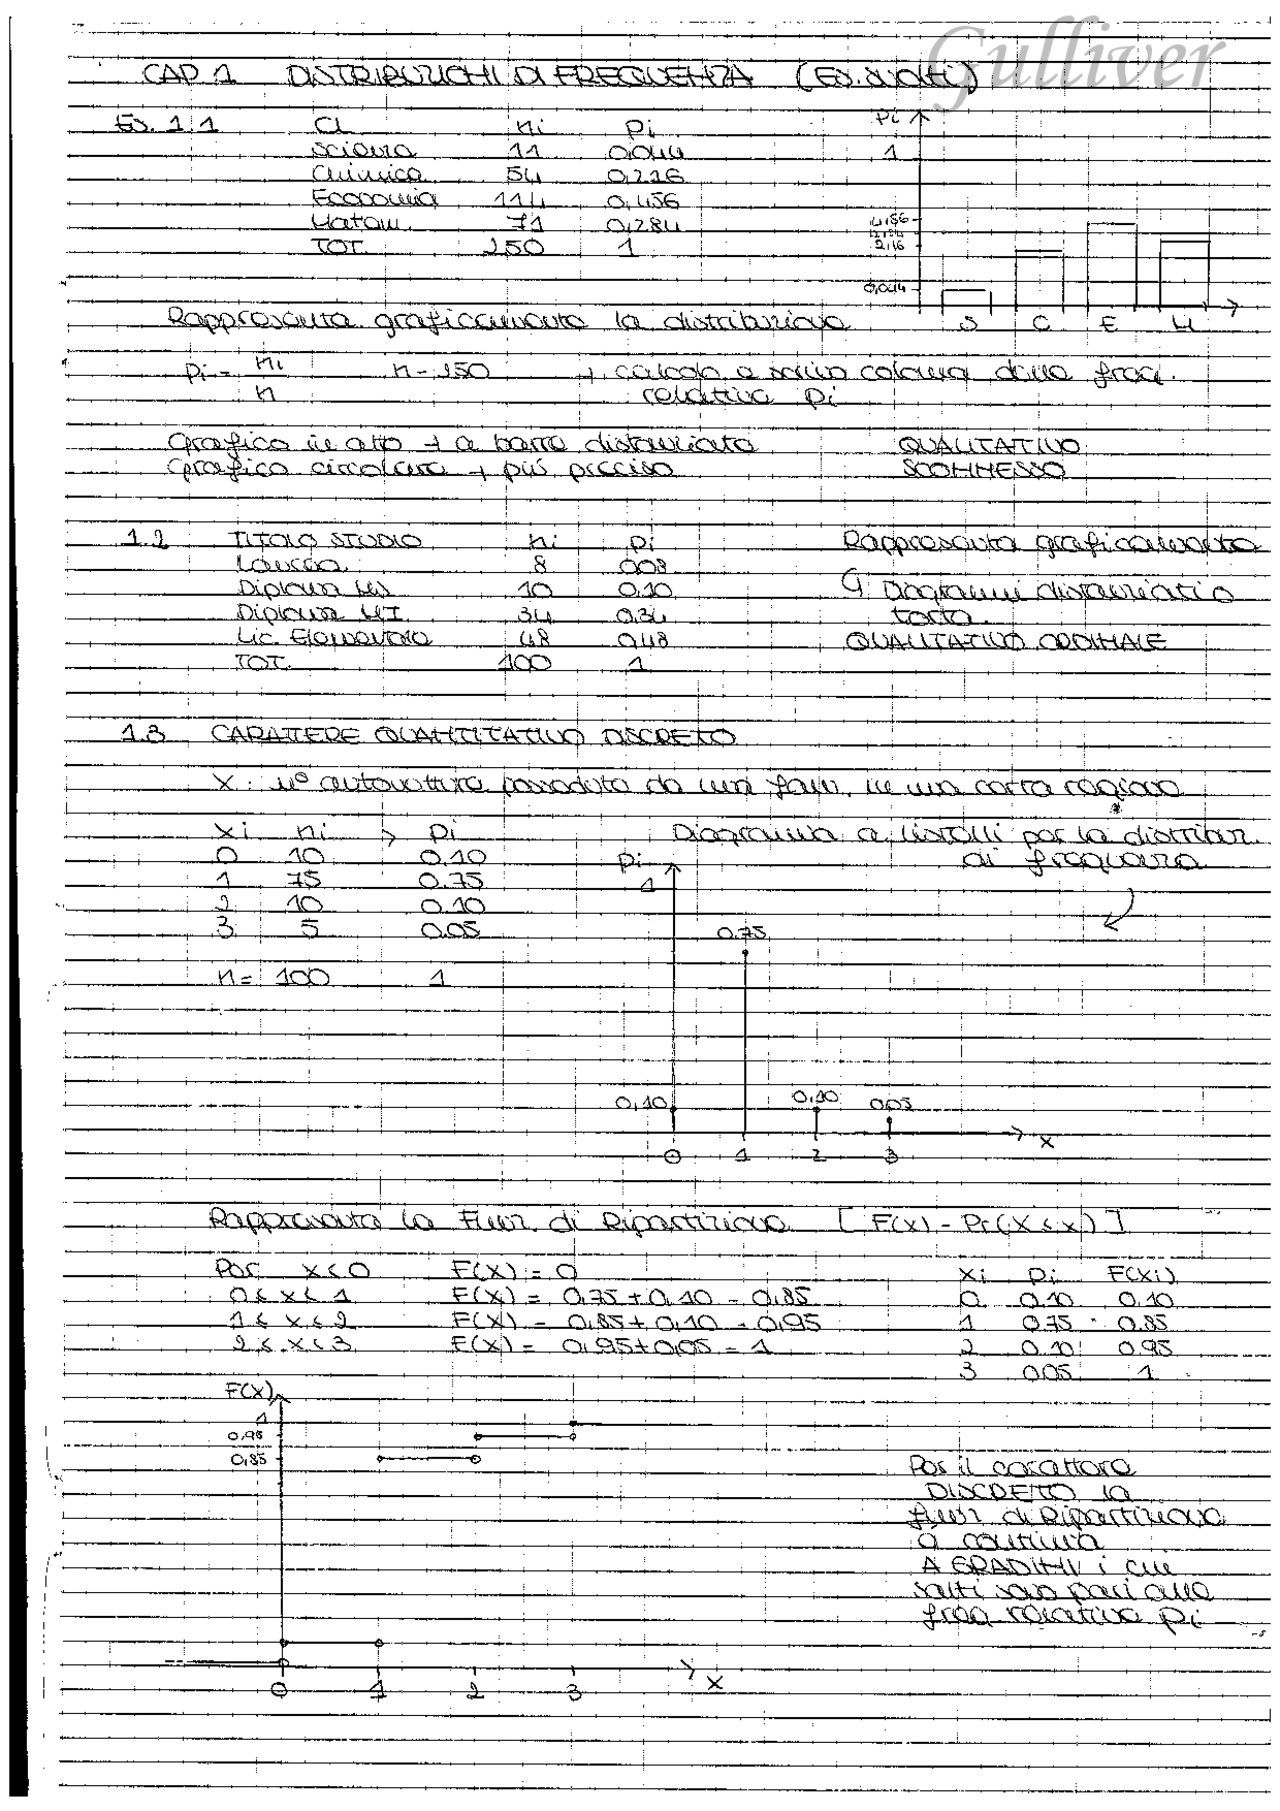 Gulliver
CAP 1 DISTRIBUZIONI DI FREQUENZA (Es. svolti)
Es. 1.1 CL ni pi
Scienza 11 0,044
Chimica 54 0,216
Economia 114 0,456
Matem. 71 0,284
TOT. 250 1
Pi
1
0,044
S C E M
Rappresenta graficamente la distribuzione
pi = ni / n n = 250 → calcolo e scrivo colonna delle freq.
relative pi
Grafico in alto → a barre distanziate QUALITATIVO
Grafico circolare → più preciso SCONNESSO
1.2 TITOLO STUDIO ni pi Rappresenta graficamente
Laurea 8 0,08
Diploma MS 10 0,10 Diagrammi distanziati o
Diploma MI 34 0,34 torta.
Lic. Elementare 48 0,48 QUALITATIVO ORDINALE
TOT. 100 1
1.3 CARATTERE QUANTITATIVO DISCRETO
X: n° autovetture possedute da una fam. in una certa regione
xi ni → pi Diagramma a listelli per la distribuz.
0 10 0.10 di frequenza
1 75 0.75
2 10 0.10
3 5 0.05
n = 100 1
Pi
1
0.75
0,10 0,10 0,05
0 1 2 3 x
Rappresenta la Funz. di Ripartizione [F(x) = Pr(X ≤ x)]
Per x<0 F(x) = 0 xi pi F(xi)
0 ≤ x < 1 F(x) = 0,75 + 0,10 = 0,85 0 0.10 0.10
1 ≤ x < 2 F(x) = 0,85 + 0,10 = 0,95 1 0.75 0.85
2 ≤ x < 3 F(x) = 0,95 + 0,05 = 1 2 0.10 0.95
3 0.05 1
F(x)
1
0,95
0,85
Per il carattere
DISCRETO la
funz. di Ripartizione
è continua
A GRADINI i cui
salti sono pari alle
freq. relative pi
0 1 2 3 x